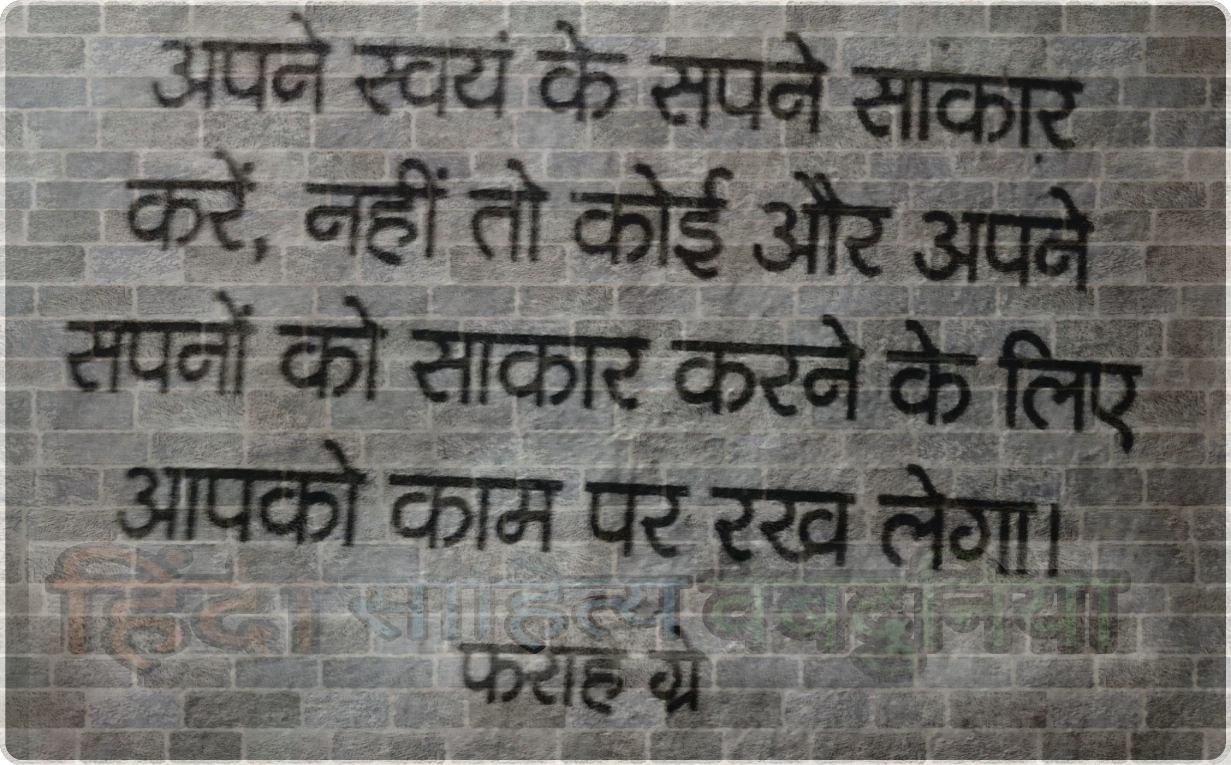 अपने स्वयं के सपने साकार
करें, नहीं तो कोई और अपने
सपनों को साकार करने के लिए
आपको काम पर रख लेगा।
हिंदी साहित्य वेबदुनिया
फराह ग्रे